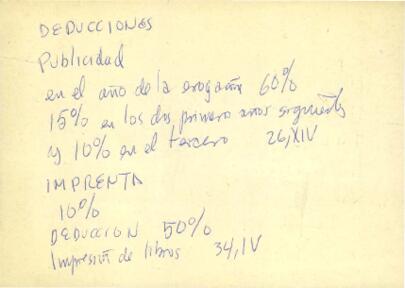 DEDUCCIONES
Publicidad
en el año de la erogación 60%
15% en los dos primero años siguients
y 10% en el tercero 26, XIV
IMPRENTA
10%
DEDUCCION 50%
Impresión de libros 34, IV